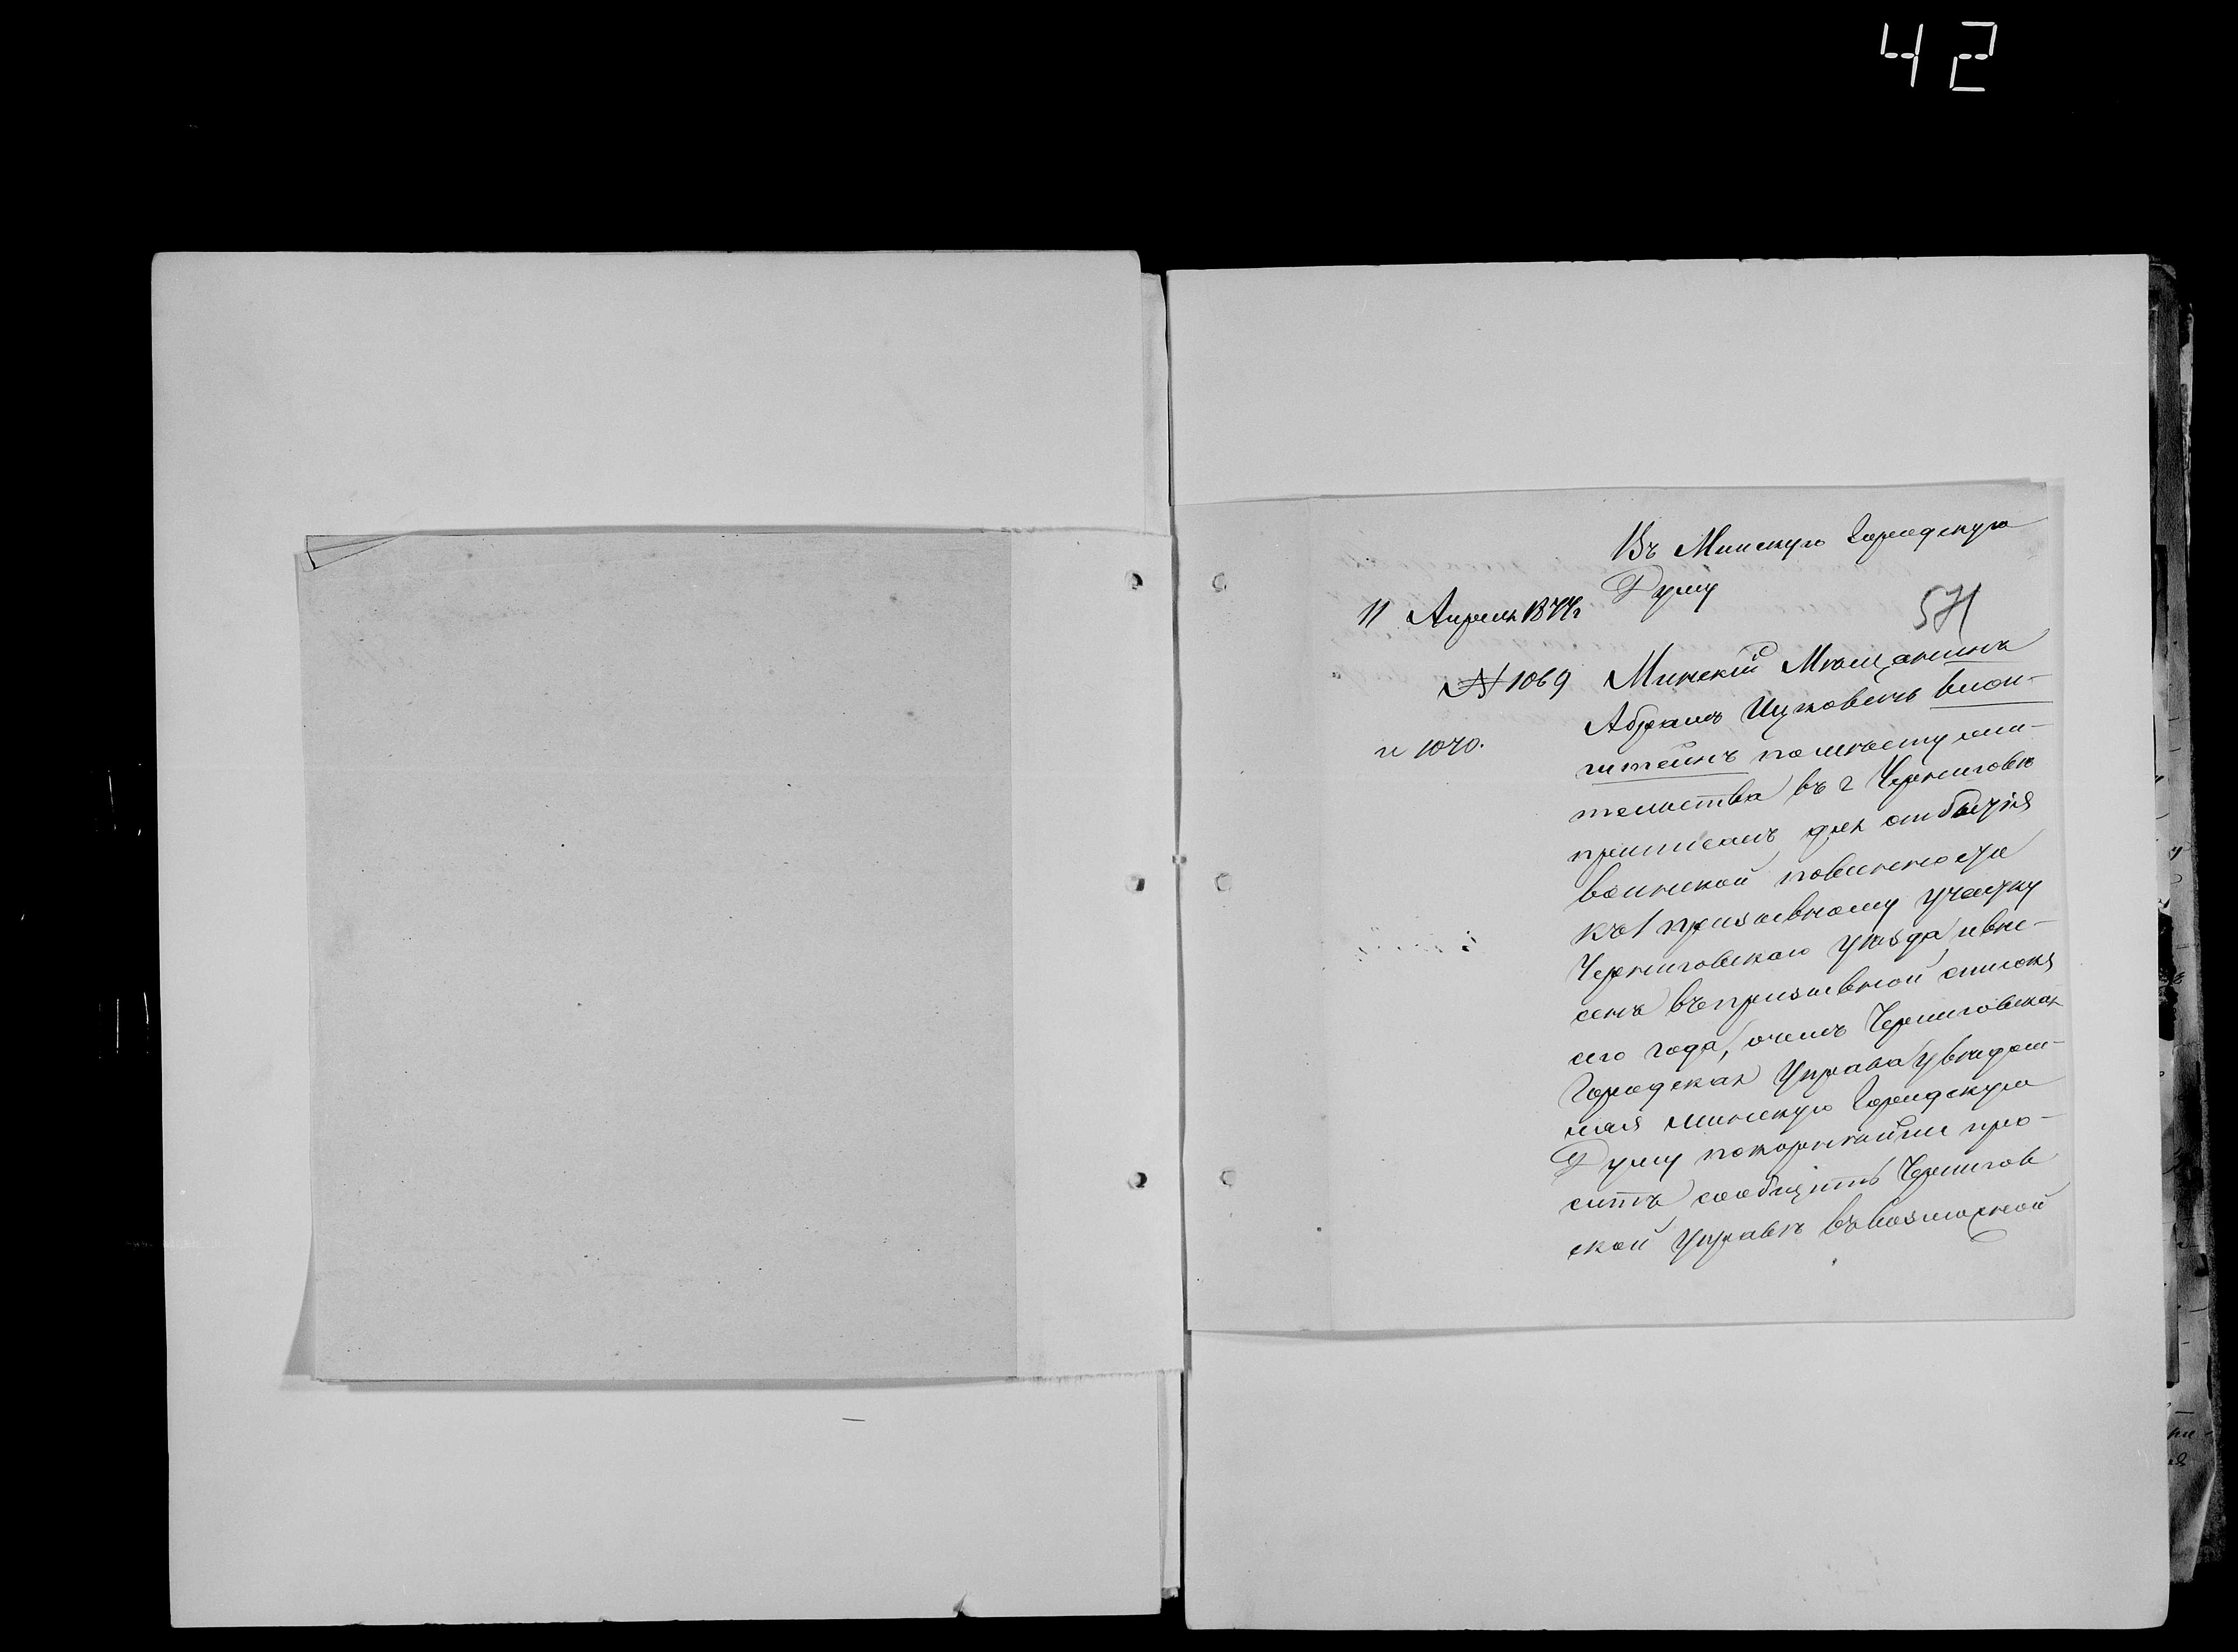 42
Въ Минскую Городскую
Думу
11 Апреля 1877г
571
№ 1069
и 1070.
Минскій Мѣщанинъ
Абрамъ Ицковичъ
штейнъ по мѣсту жи-
тельства въ г Черниговѣ
приписанъ для отбытія
воинской повинности
къ 1 призывному участку
Черниговскаго уѣзда и вне-
сенъ въ призывной списокъ
сего года, о чемъ Черниговская
Городская Управа увѣдом-
ляя Минскую Городскую
Думу покорнѣйше про-
ситъ сообщить Чернигов
ской Управѣ въ возможной